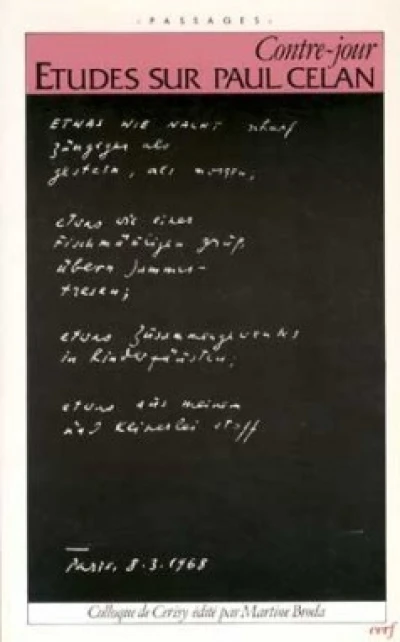 · PASSAGES ·
Contre-jour
ETUDES SUR PAUL CELAN
ETWAS WIE NACHT, scharf-
züngiger als
gestern, als morgen;
etwas wie einer
Fischmäuligen Gruß
übern Jammer-
tresen;
etwas Zusammengewehtes
in Kinderfäusten;
etwas aus meinem
und keinerlei Stoff
Paris, 8.3.1968
Colloque de Cerisy édité par Martine Broda
cerf